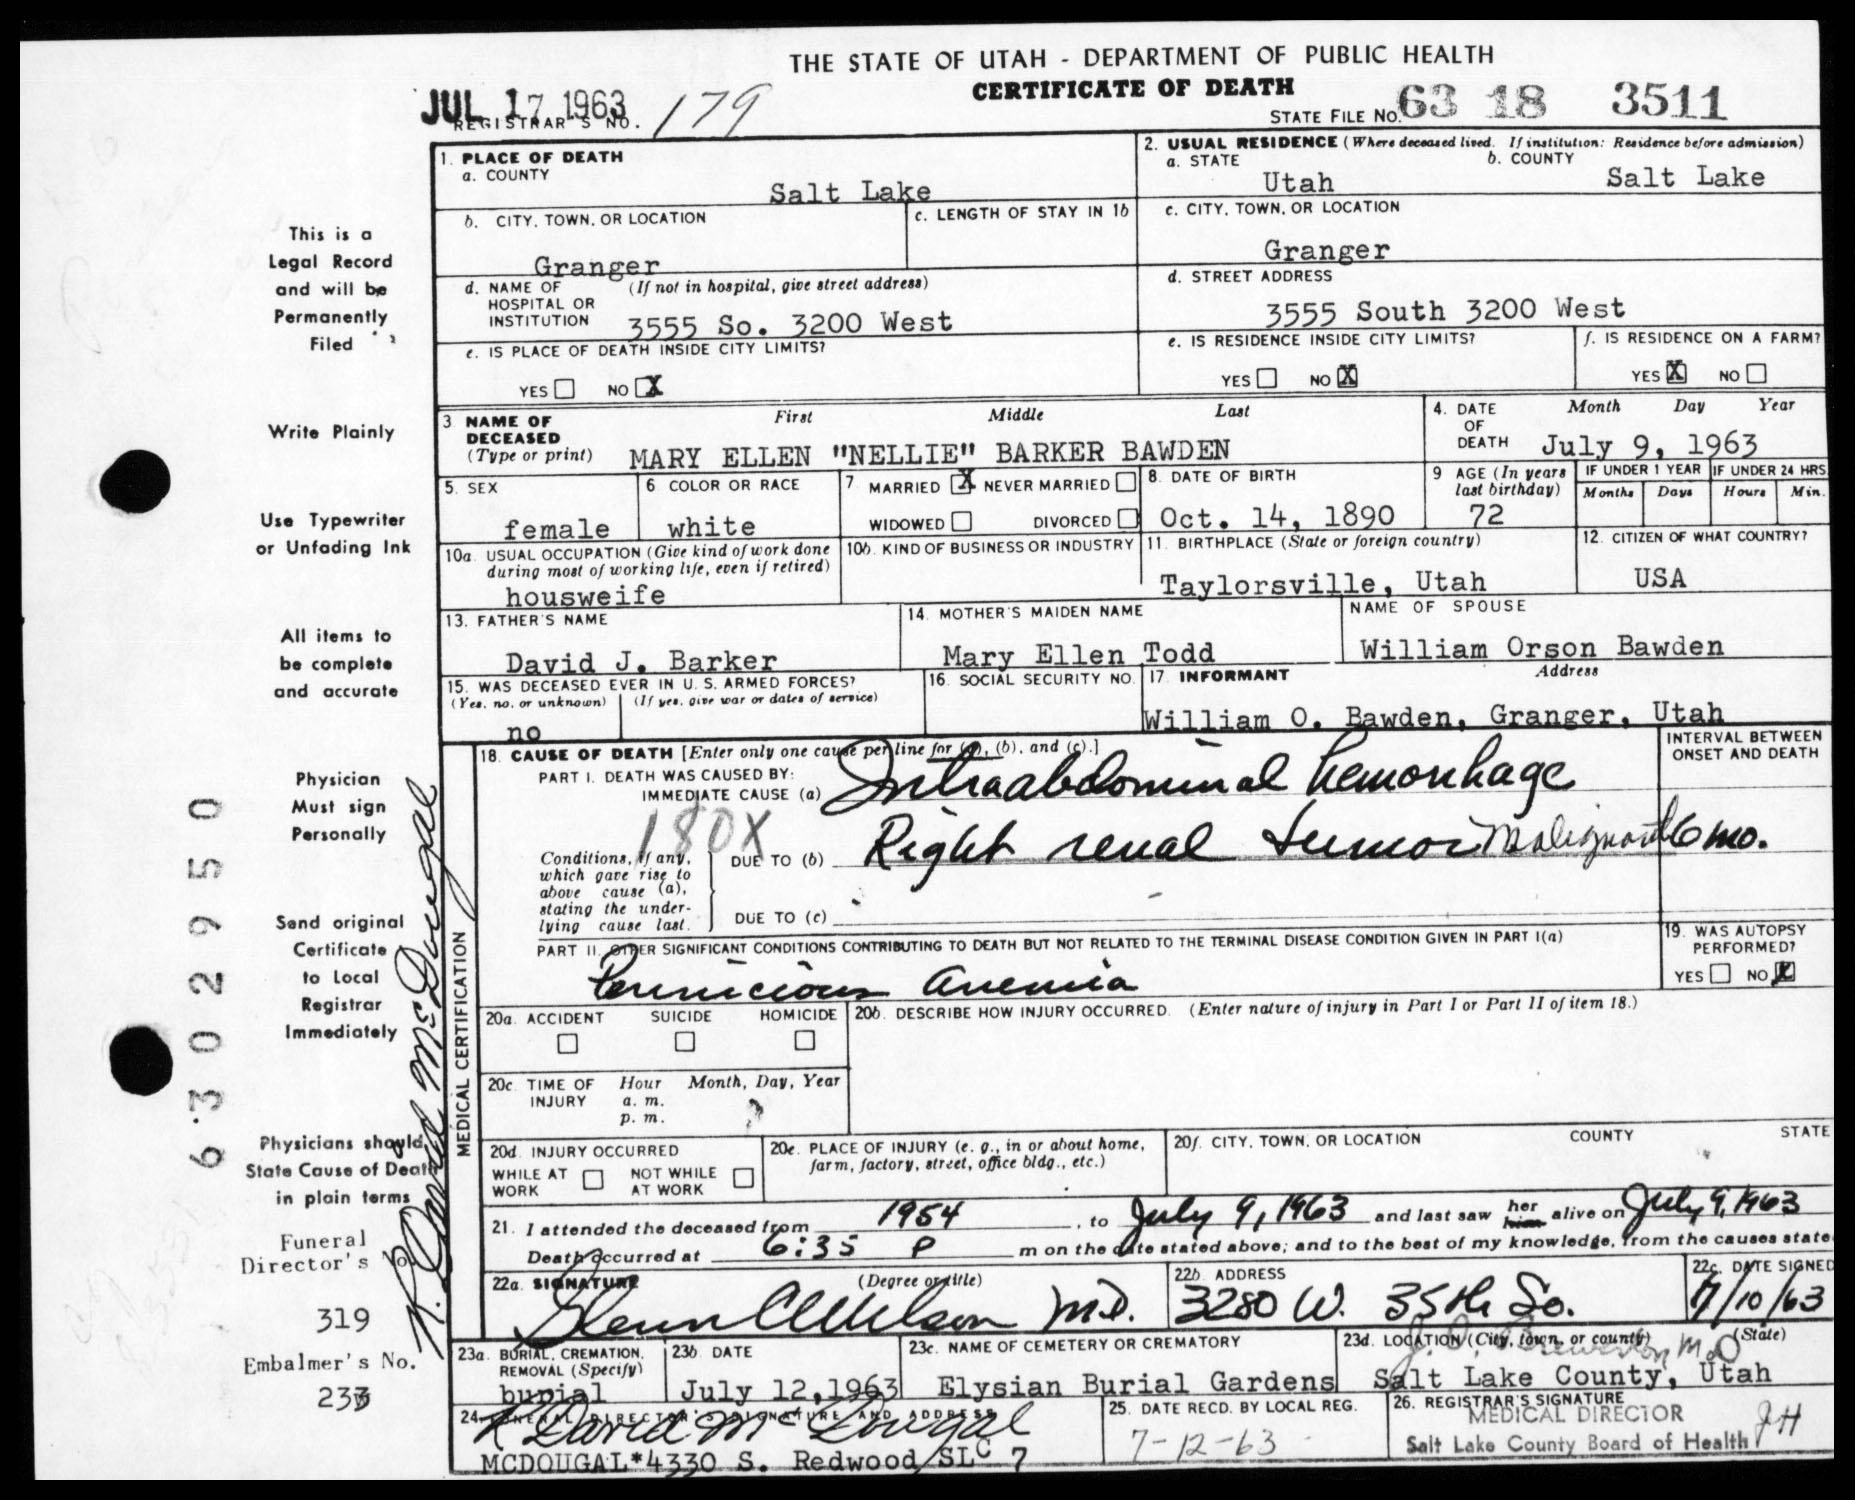 THE STATE OF UTAH - DEPARTMENT OF PUBLIC HEALTH
CERTIFICATE OF DEATH
JUL 17 1963
REGISTRAR'S NO. 179
STATE FILE NO. 63 18 3511
1. PLACE OF DEATH
a. COUNTY
Salt Lake
2. USUAL RESIDENCE (Where deceased lived. If institution: Residence before admission)
a. STATE b. COUNTY
Utah Salt Lake
b. CITY, TOWN, OR LOCATION
Granger
c. LENGTH OF STAY IN 1b
c. CITY, TOWN, OR LOCATION
Granger
d. NAME OF (If not in hospital, give street address)
HOSPITAL OR
INSTITUTION 3555 So. 3200 West
d. STREET ADDRESS
3555 South 3200 West
e. IS PLACE OF DEATH INSIDE CITY LIMITS?
YES NO X
e. IS RESIDENCE INSIDE CITY LIMITS?
YES NO X
f. IS RESIDENCE ON A FARM?
YES X NO
3 NAME OF DECEASED
(Type or print)
First Middle Last
MARY ELLEN "NELLIE" BARKER BAWDEN
4. DATE OF DEATH
Month Day Year
July 9, 1963
5. SEX
female
6 COLOR OR RACE
white
7 MARRIED X NEVER MARRIED
WIDOWED DIVORCED
8. DATE OF BIRTH
Oct. 14, 1890
9 AGE (In years
last birthday)
72
IF UNDER 1 YEAR
Months Days
IF UNDER 24 HRS.
Hours Min.
10a. USUAL OCCUPATION (Give kind of work done
during most of working life, even if retired)
housweife
10b. KIND OF BUSINESS OR INDUSTRY
11. BIRTHPLACE (State or foreign country)
Taylorsville, Utah
12. CITIZEN OF WHAT COUNTRY?
USA
13. FATHER'S NAME
David J. Barker
14. MOTHER'S MAIDEN NAME
Mary Ellen Todd
NAME OF SPOUSE
William Orson Bawden
15. WAS DECEASED EVER IN U. S. ARMED FORCES?
(Yes, no, or unknown) (If yes, give war or dates of service)
no
16. SOCIAL SECURITY NO.
17. INFORMANT Address
William O. Bawden, Granger, Utah
MEDICAL CERTIFICATION
18. CAUSE OF DEATH [Enter only one cause per line for (a), (b), and (c).]
PART I. DEATH WAS CAUSED BY:
IMMEDIATE CAUSE (a) Intraabdominal hemorrhage
INTERVAL BETWEEN
ONSET AND DEATH
180X
Conditions, if any,
which gave rise to
above cause (a),
stating the under-
lying cause last.
DUE TO (b) Right renal tumor Malignant 6 mo.
DUE TO (c)
PART II. OTHER SIGNIFICANT CONDITIONS CONTRIBUTING TO DEATH BUT NOT RELATED TO THE TERMINAL DISEASE CONDITION GIVEN IN PART I(a)
Pernicious anemia
19. WAS AUTOPSY
PERFORMED?
YES NO X
20a. ACCIDENT SUICIDE HOMICIDE
20b. DESCRIBE HOW INJURY OCCURRED. (Enter nature of injury in Part I or Part II of item 18.)
20c. TIME OF INJURY
Hour Month, Day, Year
a. m.
p. m.
20d. INJURY OCCURRED
WHILE AT WORK NOT WHILE AT WORK
20e. PLACE OF INJURY (e. g., in or about home,
farm, factory, street, office bldg., etc.)
20f. CITY, TOWN, OR LOCATION COUNTY STATE
21. I attended the deceased from 1954, to July 9, 1963 and last saw her him alive on July 9, 1963
Death occurred at 6:35 P m on the date stated above; and to the best of my knowledge, from the causes state
22a. SIGNATURE (Degree or title)
M.D.
22b. ADDRESS
3280 W. 35th So.
22c. DATE SIGNED
7/10/63
23a. BURIAL, CREMATION,
REMOVAL (Specify)
burial
23b. DATE
July 12, 1963
23c. NAME OF CEMETERY OR CREMATORY
Elysian Burial Gardens
23d. LOCATION (City, town, or county) (State)
Salt Lake County, Utah
24. FUNERAL DIRECTOR'S SIGNATURE AND ADDRESS
R David McDougal
MCDOUGAL*4330 S. Redwood/SLC 7
25. DATE RECD. BY LOCAL REG.
7-12-63
26. REGISTRAR'S SIGNATURE
MEDICAL DIRECTOR
Salt Lake County Board of Health JH
This is a
Legal Record
and will be
Permanently
Filed
Write Plainly
Use Typewriter
or Unfading Ink
All items to
be complete
and accurate
Physician
Must sign
Personally
Send original
Certificate
to Local
Registrar
Immediately
Physicians should
State Cause of Death
in plain terms
Funeral
Director's No
319
Embalmer's No.
233
R. David McDougal
6302950